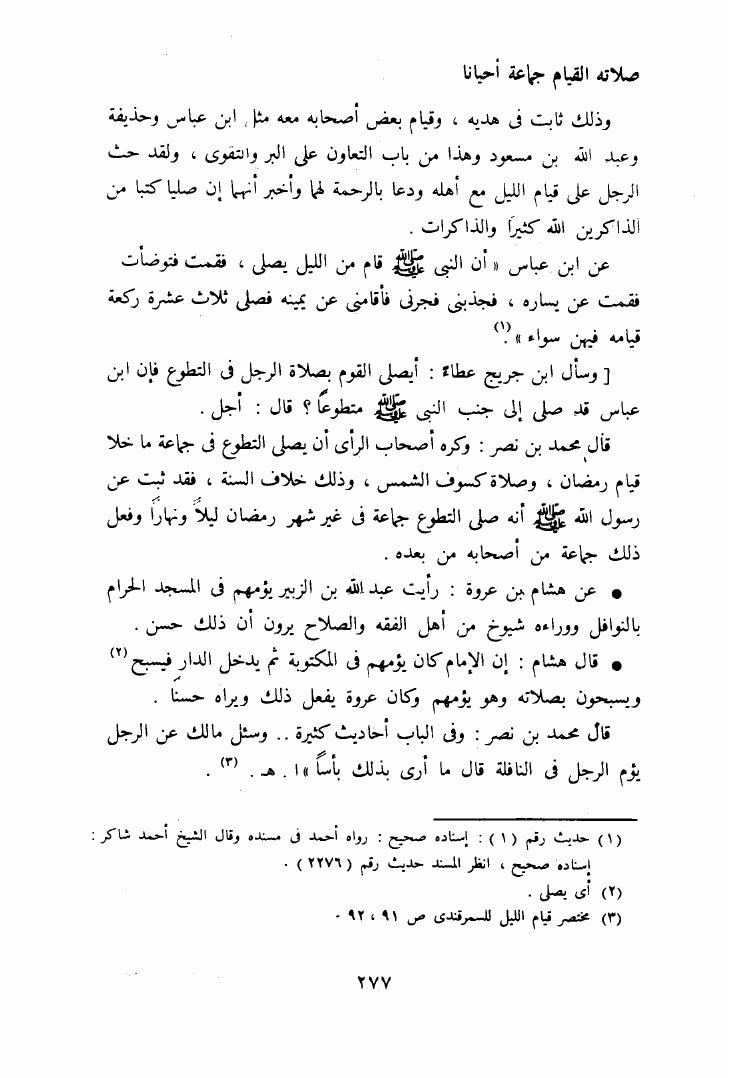 صلاته القيام جماعة أحيانا
وذلك ثابت فى هديه ، وقيام بعض أصحابه معه مثل ابن عباس وحذيفة
وعبد الله بن مسعود وهذا من باب التعاون على البر والتقوى ، ولقد حث
الرجل على قيام الليل مع أهله ودعا بالرحمة لهما وأخبر أنهما إن صليا كتبا من
الذاكرين الله كثيرًا والذاكرات .
عن ابن عباس « أن النبى ﷺ قام من الليل يصلى ، فقمت فتوضأت
فقمت عن يساره ، فجذبنى فجرنى فأقامنى عن يمينه فصلى ثلاث عشرة ركعة
قيامه فيهن سواء »(١).
[ وسأل ابن جريج عطاءً : أيصلى القوم بصلاة الرجل فى التطوع فإن ابن
عباس قد صلى إلى جنب النبى ﷺ متطوعًا ؟ قال : أجل .
قال محمد بن نصر : وكره أصحاب الرأى أن يصلى التطوع فى جماعة ما خلا
قيام رمضان ، وصلاة كسوف الشمس ، وذلك خلاف السنة ، فقد ثبت عن
رسول الله ﷺ أنه صلى التطوع جماعة فى غير شهر رمضان ليلاً ونهارًا وفعل
ذلك جماعة من أصحابه من بعده .
• عن هشام بن عروة : رأيت عبد الله بن الزبير يؤمهم فى المسجد الحرام
بالنوافل ووراءه شيوخ من أهل الفقه والصلاح يرون أن ذلك حسن .
• قال هشام : إن الإمام كان يؤمهم فى المكتوبة ثم يدخل الدار فيسبح(٢)
ويسبحون بصلاته وهو يؤمهم وكان عروة يفعل ذلك ويراه حسنًا .
قال محمد بن نصر : وفى الباب أحاديث كثيرة .. وسئل مالك عن الرجل
يؤم الرجل فى النافلة قال ما أرى بذلك بأسًا »ا . هـ . (٣) .
(١) حديث رقم ( ١ ) : إسناده صحيح : رواه أحمد فى مسنده وقال الشيخ أحمد شاكر :
إسناده صحيح ، انظر المسند حديث رقم ( ٢٢٧٦ ) .
(٢) أى يصلى .
(٣) مختصر قيام الليل للسمرقندى ص ٩١ ، ٩٢ .
٢٧٧